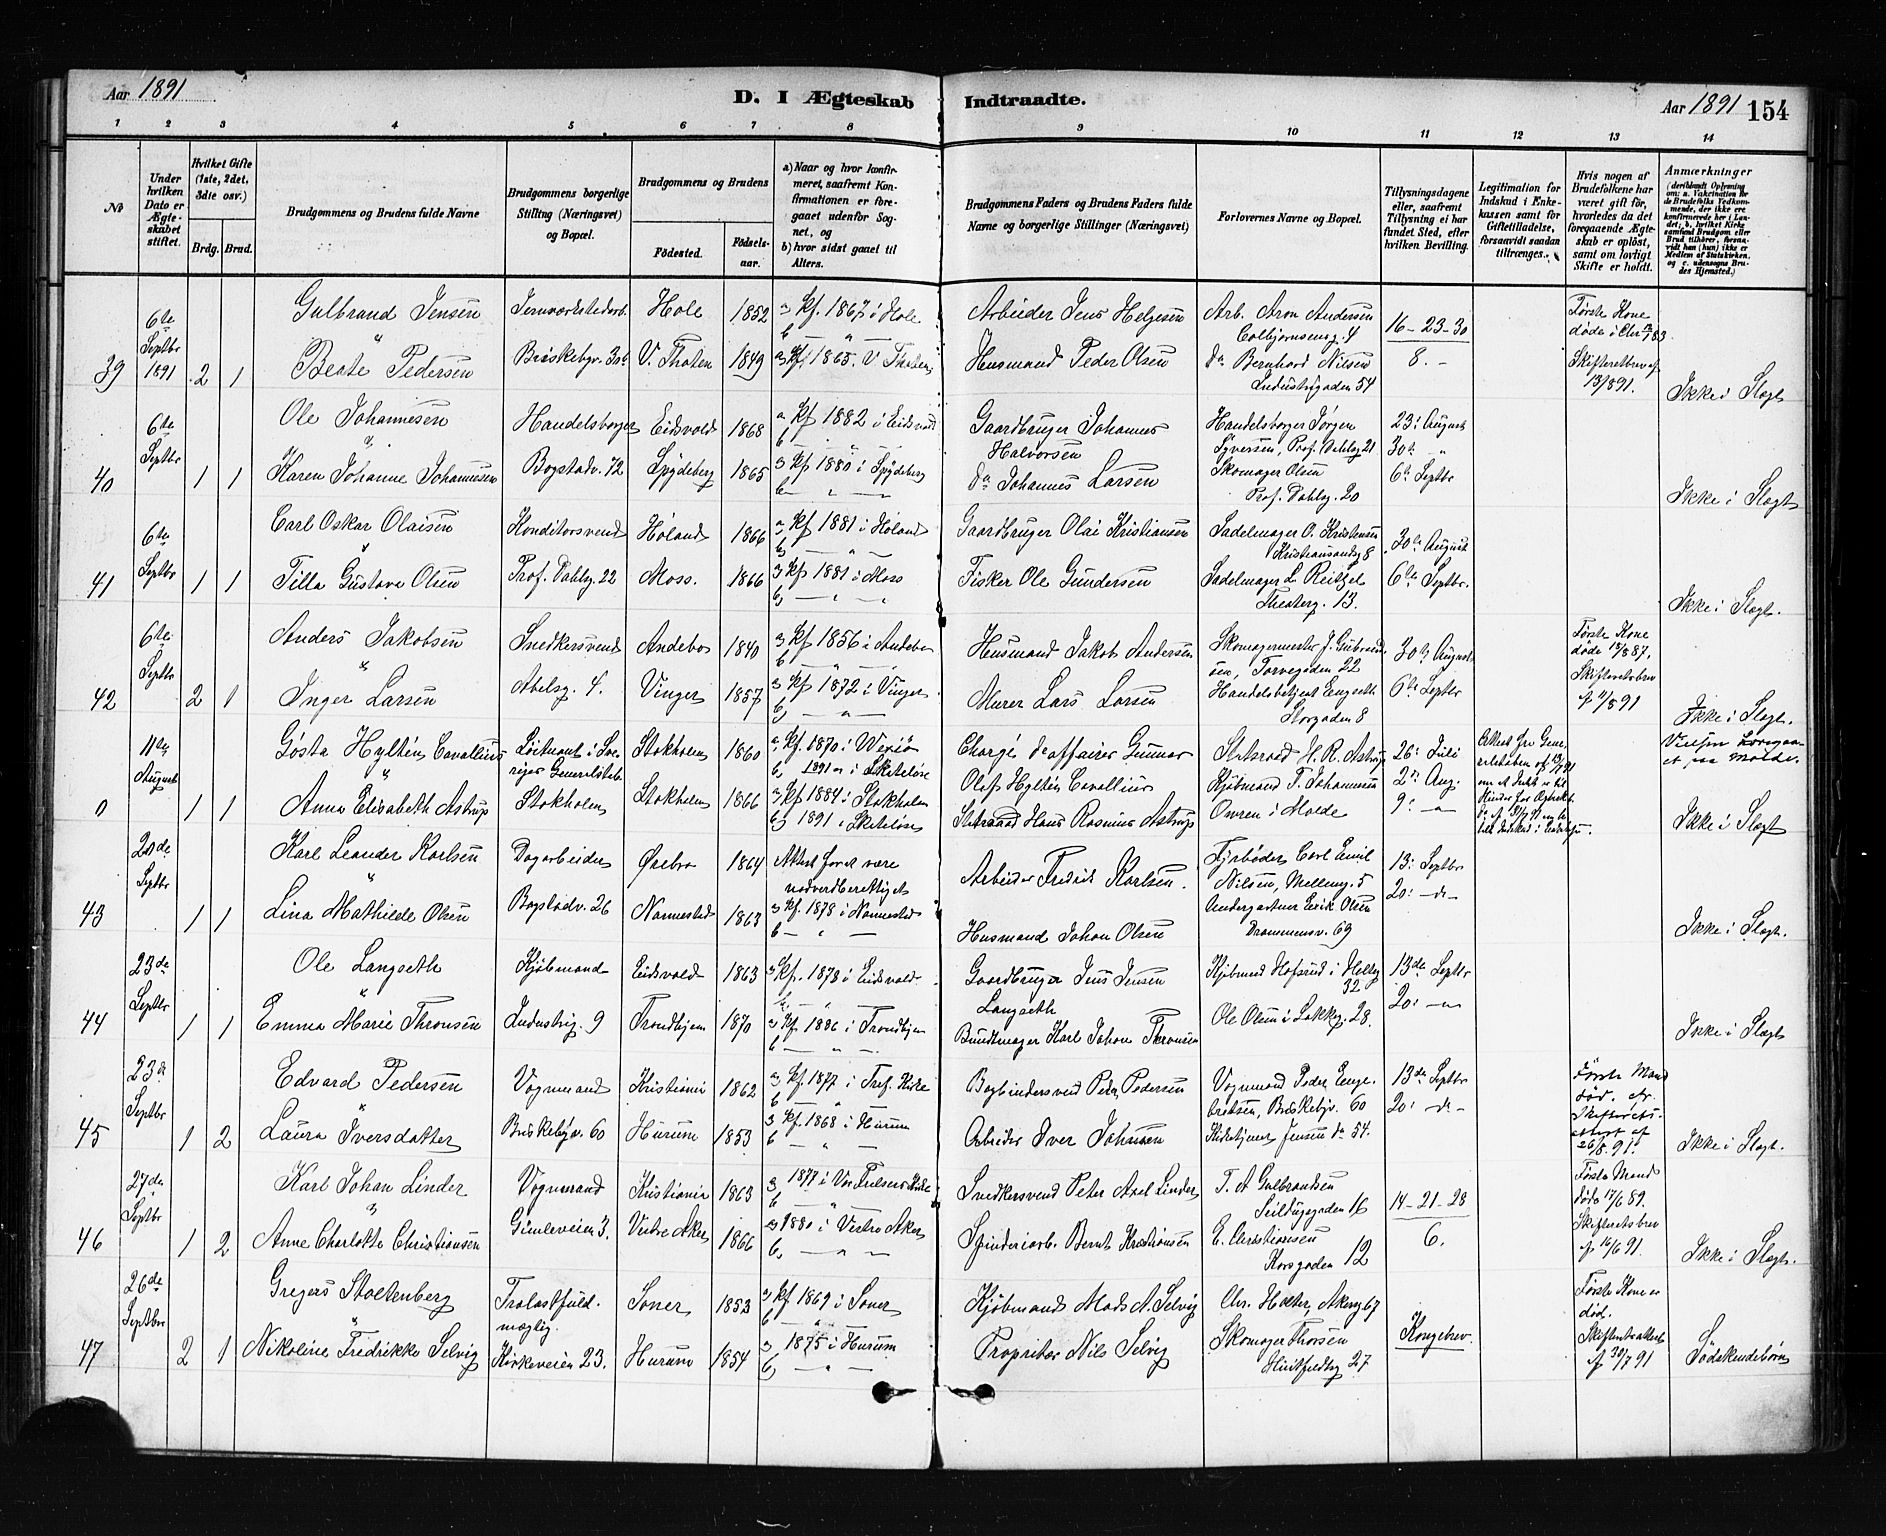 Aar 1891
D. I Ægteskab Indtraadte.
Aar 1891 154
1 2 3 4 5 6 7 8 9 10 11 12 13 14
No
Under hvilken Dato er Ægteskabet stiftet.
Hvilket Gifte (1ste, 2det, 3die osv.)
Brdg. Brud.
Brudgommens og Brudens fulde Navne
Brudgommens borgerlige Stilling (Næringsvei) og Bopæl.
Brudgommens og Brudens
Födested. Födselsaar.
a) Naar og hvor konfirmeret, saafremt Konfirmationen er foregaaet udenfor Sognet, og
b) hvor sidst gaaet til Alters.
Brudgommens Faders og Brudens Faders fulde Navne og borgerlige Stillinger (Næringsvei)
Forlovernes Navne og Bopæl.
Tillysningsdagene eller, saafremt Tillysning ei har fundet Sted, efter hvilken Bevilling.
Legitimation for Indskud i Enkekassen samt for Giftetilladelse, forsaavidt saadan tiltrænges.
Hvis nogen af Brudefolkene har været gift för, hvorledes da det foregaaende Ægteskab er oplöst, samt om lovligt Skifte er holdt.
Anmærkninger
39 6te Septbr 1891 2 1
Gulbrand Jensen Hole 1852 a kf. 1867 i Hole
Arbeider Jens Helgesen Arb. Aron Andersen Colbjørnsensg. 4 16-23-30
Første Kone døde i
Beate Pedersen V. Thoten 1849 a kf. 1865. V. Thoten
Husmand Peder Olsen do Bernhard Nilsen Industrigaden 54 8.-
13/8 91. Ikke i Slægt
40 6te Septbr 1 1
Ole Johannesen Handelsborger Eidsvold 1868 a kf 1882 i Eidsvold
Gaardbruger Johannes Halvorsen Handelsborger Jørgen Syversen, Prof. Dahlsg 21 23: August 30te "
Karen Johanne Johannesen Bogstadv. 72 Spydeberg 1865 a kf 1880 i Spydeberg
do Johannes Larsen Skomager Olsen Prof. Dahlsg. 20 6te Septbr
Ikke i Slægt
41 6te Septbr 1 1
Carl Oskar Olaisen Konditorsvend Høland 1866 a kf 1881 i Høland
Gaardbruger Olai Kristiansen Sadelmager O. Kristensen Kristiansandsg 8 30te August
Tilla Gustava Olsen Prof. Dahlsg. 22 Moss. 1866 a kf 1881 i Moss
Fisker Ole Gundersen Sadelmager L. Reitzel Theaterg. 13. 6te Septbr.
Ikke i Slægt.
42 6te Septbr 2 1
Anders Jakobsen Snedkersvend Andebo 1840 a kf 1856 i Andebo
Husmand Jakob Andersen Skomagermester J. Gulbrandsen, Torvegaden 22 30te August
Første Kone døde 13/3 87. Skifteretsbrev
Inger Larsen Abelsg. 4. Vinger 1857 a kf 1872 i Vinger
Murer Lars Larsen Handelsbetjent Engseth Storgaden 8 6te Septbr
Ikke i Slægt.
0 11te August 1 1
Gösta Hyltén Cavallius Löitnant i Sveriges Generalstab Stokholm 1860 a kf. 1870 i Wexiö
b 1891 i Skateløse
Chargé d'affairer Gunnar Olof Hyltén Cavallius Statsraad H. R. Astrup 26: Juli 2: Aug. 9: "
Anna Elisabeth Astrup Stokholm Stokholm 1866 a kf 1884 i Stokholm
b 1891 i Skateløse
Statsraad Hans Rasmus Astrup Kjøbmand T. Johannesen Owren i Molde
Ikke i Slægt
43 20de Septbr 1 1
Karl Leander Karlsen Dagarbeider Ørebro 1864 Attest for at være nadverdberettiget
Arbeider Fredrik Karlsen. Fyrbøder Carl Emil Nilsen, Mellemg. 5 13: Septbr
Lina Mathilde Olsen Bogstadv. 26 Nannestad 1863 a kf. 1878 i Nannestad
Husmand Johan Olsen Erik Olsen Drammensv. 69 20: -do-
Ikke i Slægt.
44 23de Septbr 1 1
Ole Langseth Kjøbmand Eidsvold 1863 a kf. 1878 i Eidsvold
Gaardbruger Jens Jensen Langseth 32 13de Septbr
Emma Marie Thronsen Industrig. 9 Trondhjem 1870 a kf. 1886 i Trondhjem
Bundtmager Karl Johan Thronsen Ole Olsen i Lakkeg. 28. 20: "
Ikke i Slægt
45 23de Septbr 1 2
Edvard Pedersen Vognmand Kristiania 1862 a kf. 1877 i Tref. Kirke
Bogbindersvend Peder Pedersen Vognmand Peder Engebretsen, Briskebyv. 60 13de Septbr
Første Mand død. 26/8 91.
Laura Iversdatter Briskebyv. 60 Hurum 1853 a kf. 1868 i Hurum
Arbeider Iver Johnsen Jensen do 54. 20: -do-
Ikke i Slægt.
46 27de Septbr 1 2
Karl Johan Linder Vognmand Kristiania 1863 a 1877 i Vor Frelsers Kirke
Snedkersvend Peter Axel Linder T. A Gulbrandsen Seilduggaden 16 14-21-28
Første Mand døde 17/6 89. Skifteretsbrev af 16/6 91.
Anne Charlotte Christiansen Gimleveien 3. Vestre Aker 1866 a 1880 i Vestre Aker
Spinderiarb. Bernt Kristiansen E. Christiansen Korsgaden 12 6.
Ikke i Slægt.
47 26de Septbr 2 1
Gregers Stoltenberg Trælastfuldmægtig. Soner 1853 a kf 1869 i Soner
Kjøbmand Mads A. Selvig Chr. Holter, Akersg 67 Kongebrev.
Første Kone er død. af 30/7 91
Nikoline Fredrikke Selvig Kirkeveien 23. Hurum 1854 a 1875 i Hurum
Proprietær Nils Selvig Skomager Thorsen 27
Södskendebørn